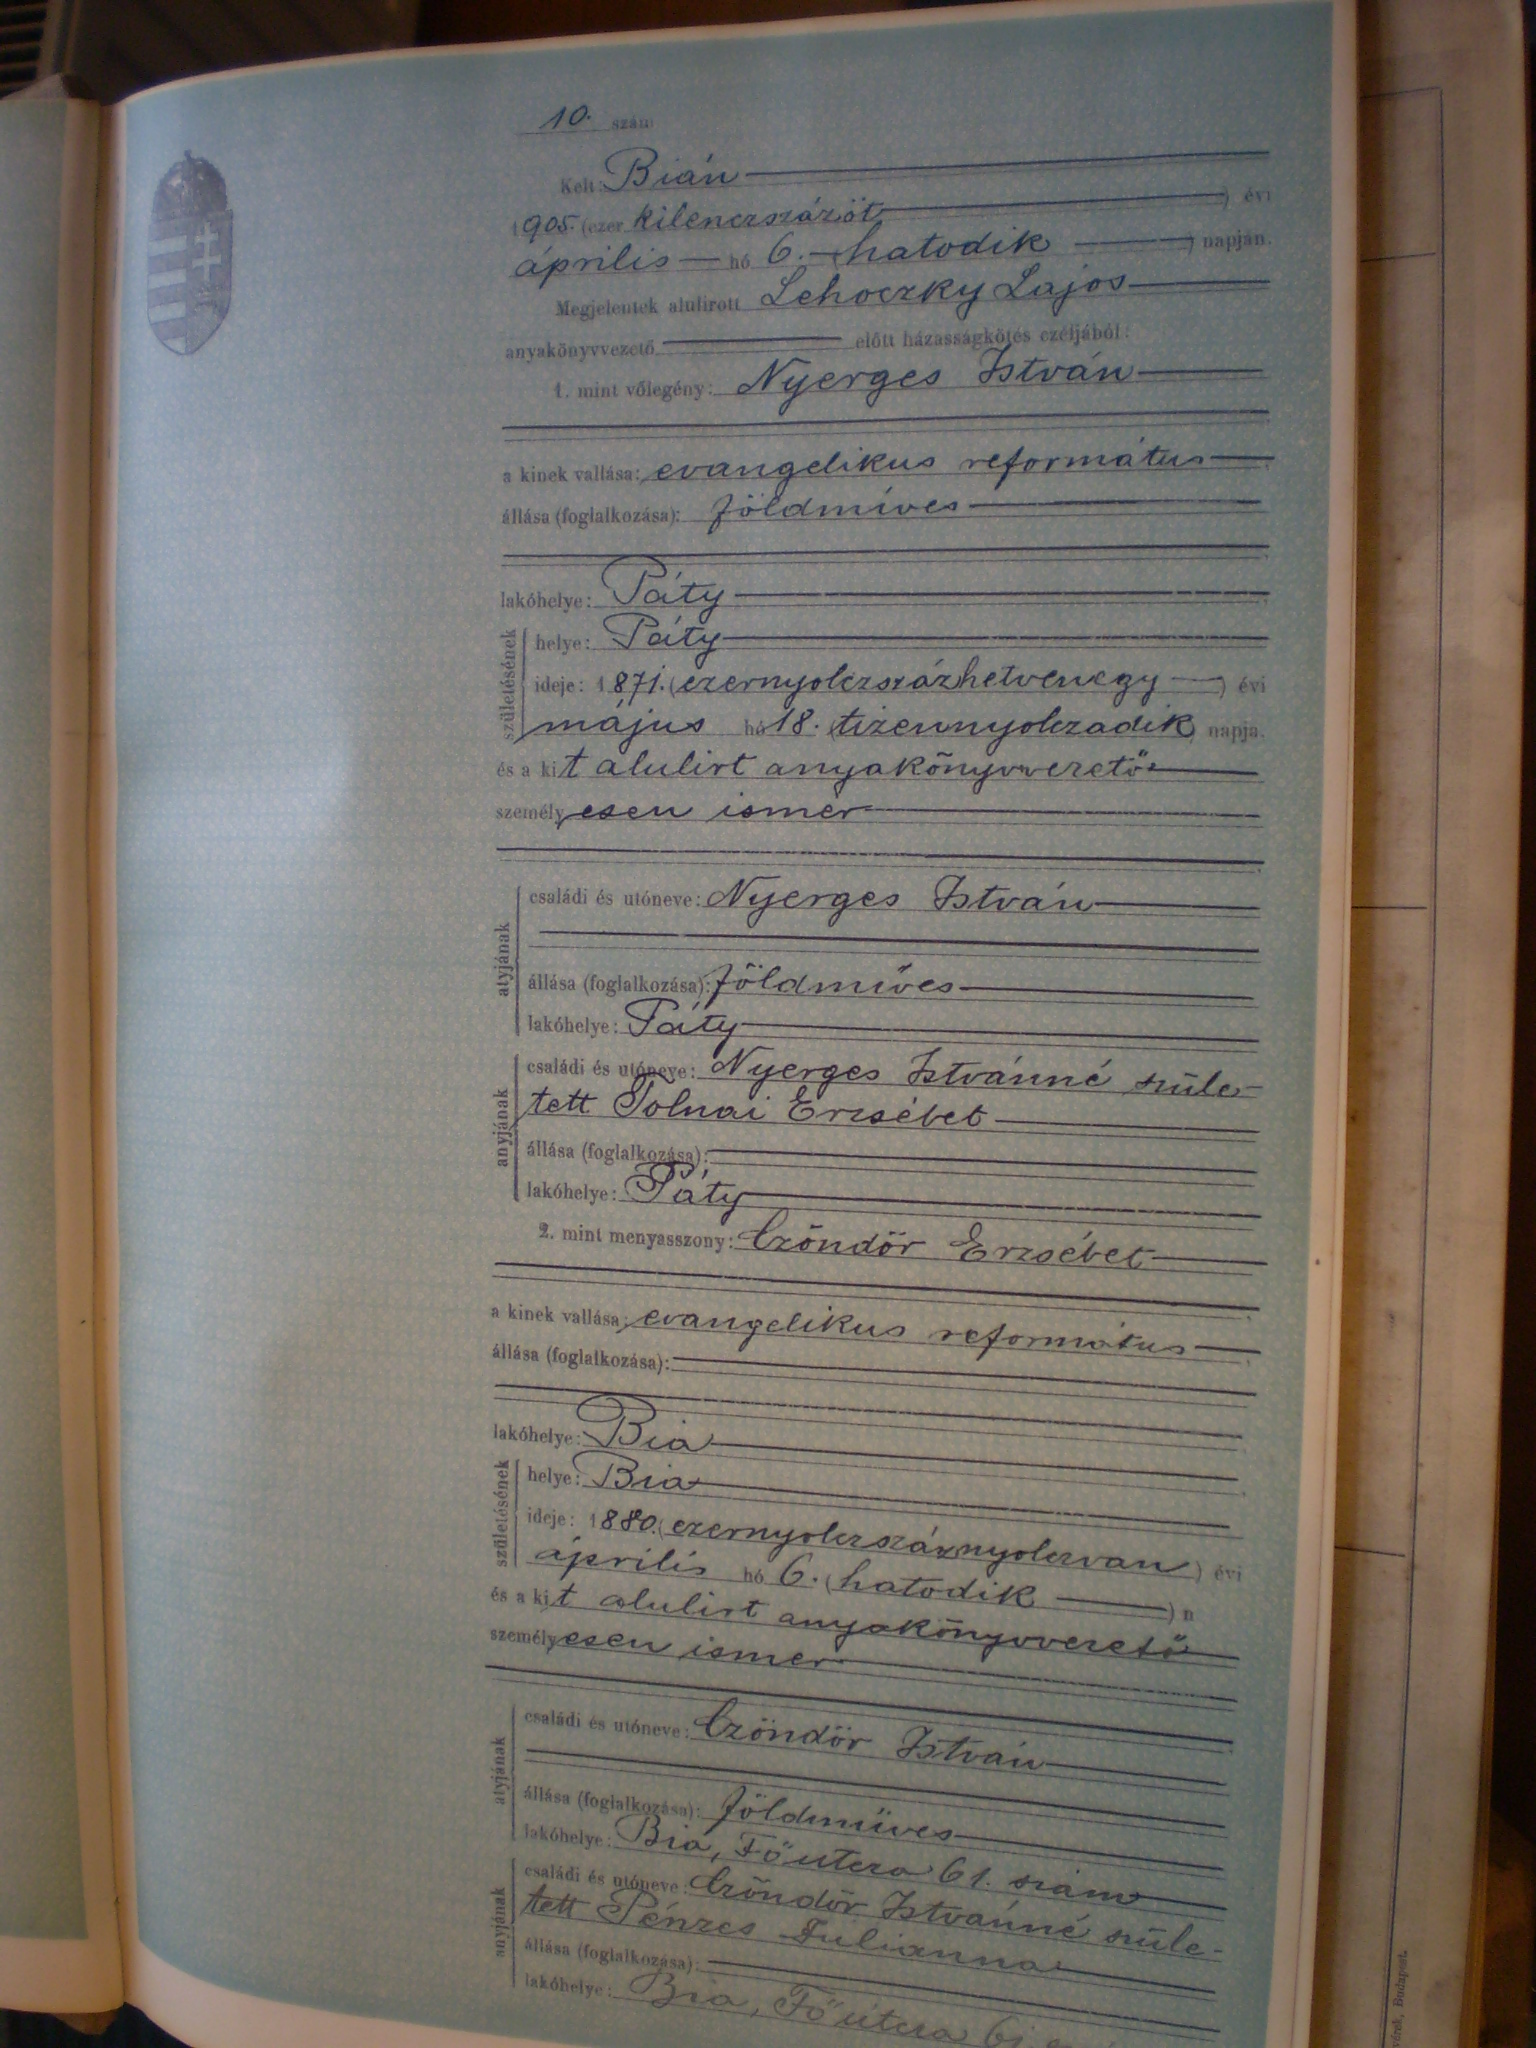 10. szám
Kelt: Bián
1905. (ezer kilenczszázöt) évi
április hó 6. (hatodik) napján.
Megjelentek alulirott Lehoczky Lajos
anyakönyvvezető előtt házasságkötés czéljából:
1. mint vőlegény: Nyerges István
a kinek vallása: evangelikus református
állása (foglalkozása): földmíves
lakóhelye: Páty
születésének
helye: Páty
ideje: 1871. (ezernyolczszázhetvenegy) évi
május hó 18. (tizennyolczadik) napja.
és a kit alulirt anyakönyvvezető
személyesen ismer
atyjának
családi és utóneve: Nyerges István
állása (foglalkozása): földmíves
lakóhelye: Páty
anyjának
családi és utóneve: Nyerges Istvánné szüle-
tett Tolnai Erzsébet
állása (foglalkozása):
lakóhelye: Páty
2. mint menyasszony: Czöndör Erzsébet
a kinek vallása: evangelikus református
állása (foglalkozása):
lakóhelye: Bia
születésének
helye: Bia
ideje: 1880. (ezernyolczszáznyolczvan) évi
április hó 6. (hatodik) n
és a kit alulirt anyakönyvvezető
személyesen ismer
atyjának
családi és utóneve: Czöndör István
állása (foglalkozása): földmüves
lakóhelye: Bia, Főutcza 61. szám
anyjának
családi és utóneve: Czöndör Istvánné szüle-
tett Pénzes Julianna
állása (foglalkozása):
lakóhelye: Bia, Főutcza 61.
Budapest.